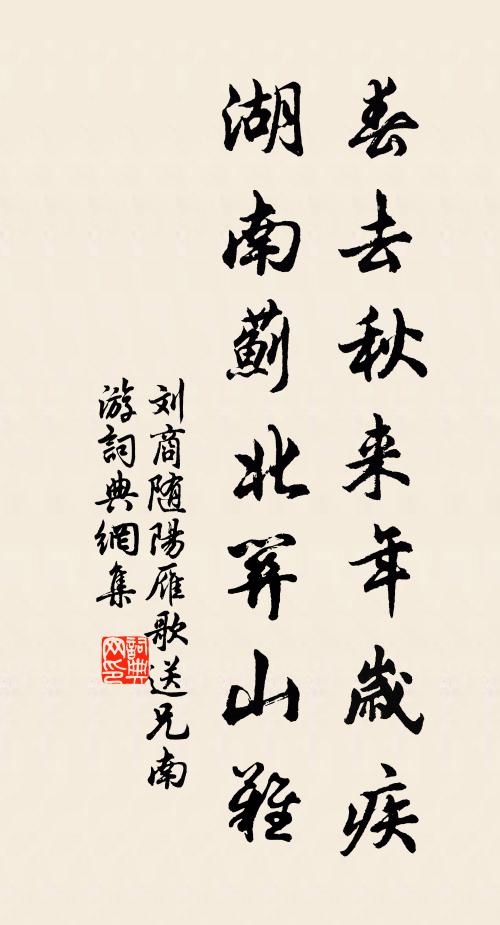 春去秋来年歲疾
湖南薊北関山難
刘商随陽雁歌送兄南
游詞典網集
詞典
网印